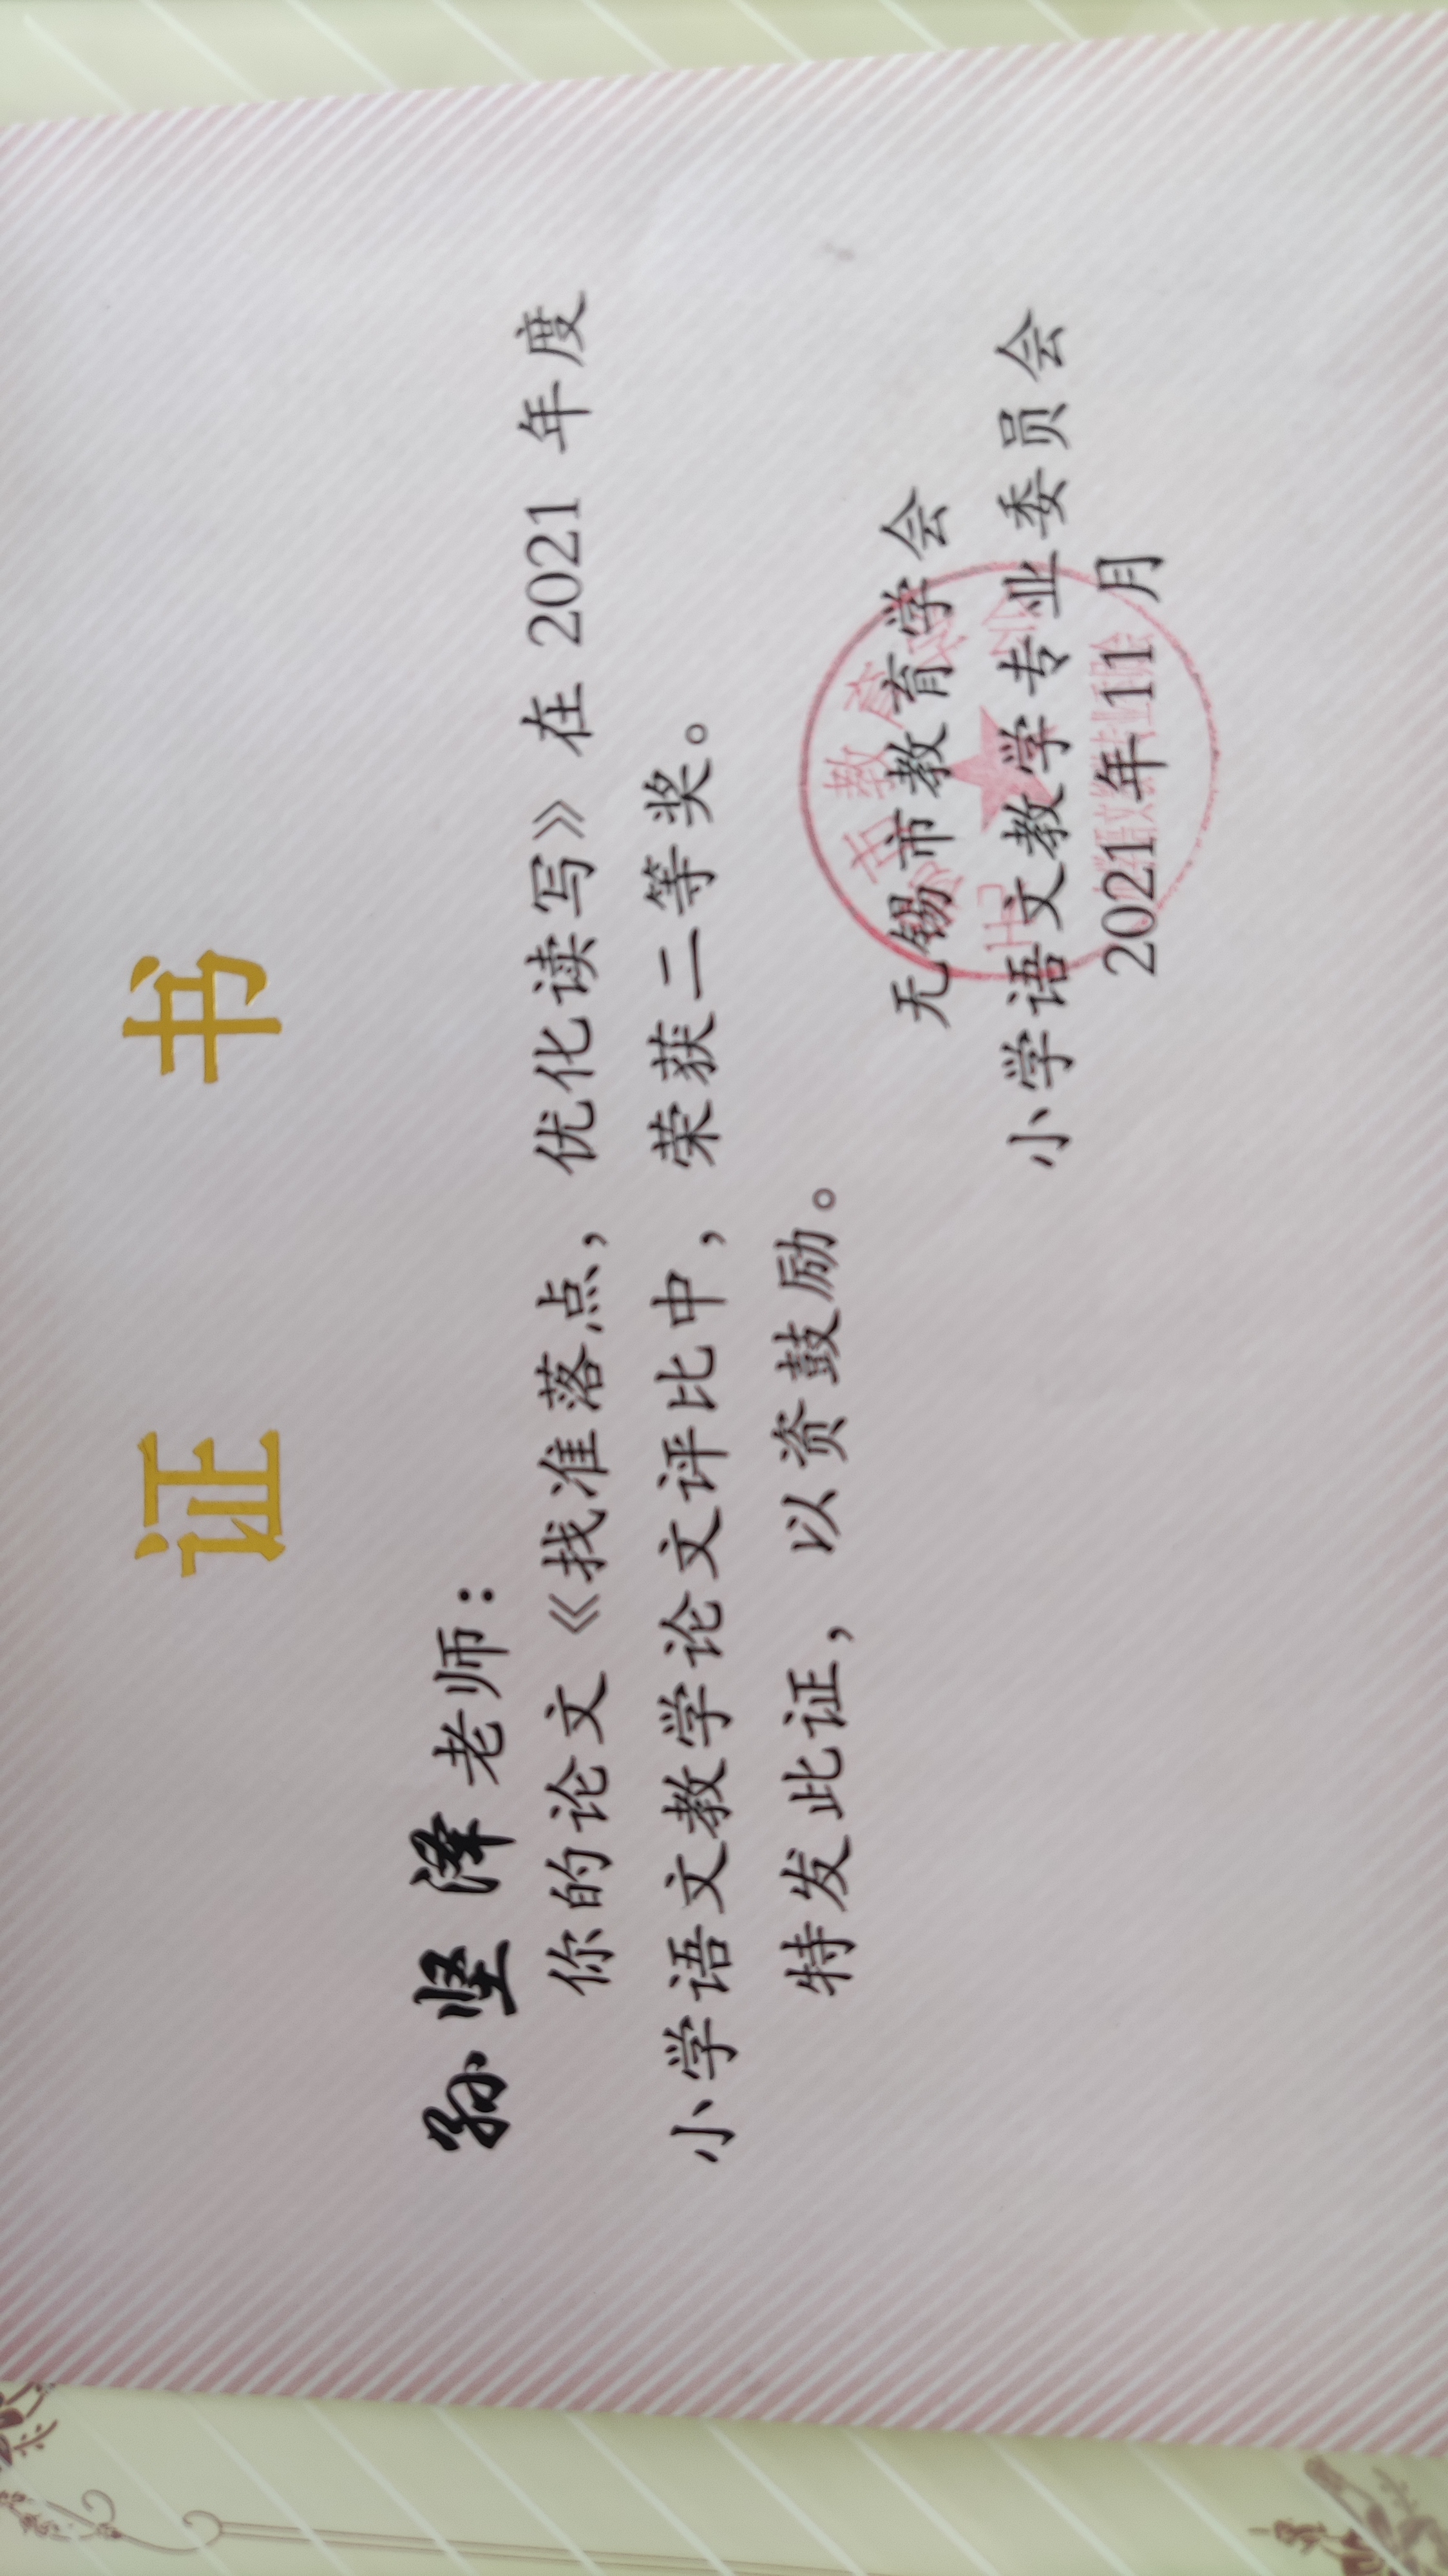 证 书
孙坚泽老师：
你的论文《找准落点，优化读写》在 2021 年度
小学语文教学论文评比中，荣获二等奖。
特发此证，以资鼓励。
无锡市教育学会
小学语文教学专业委员会
2021年11月